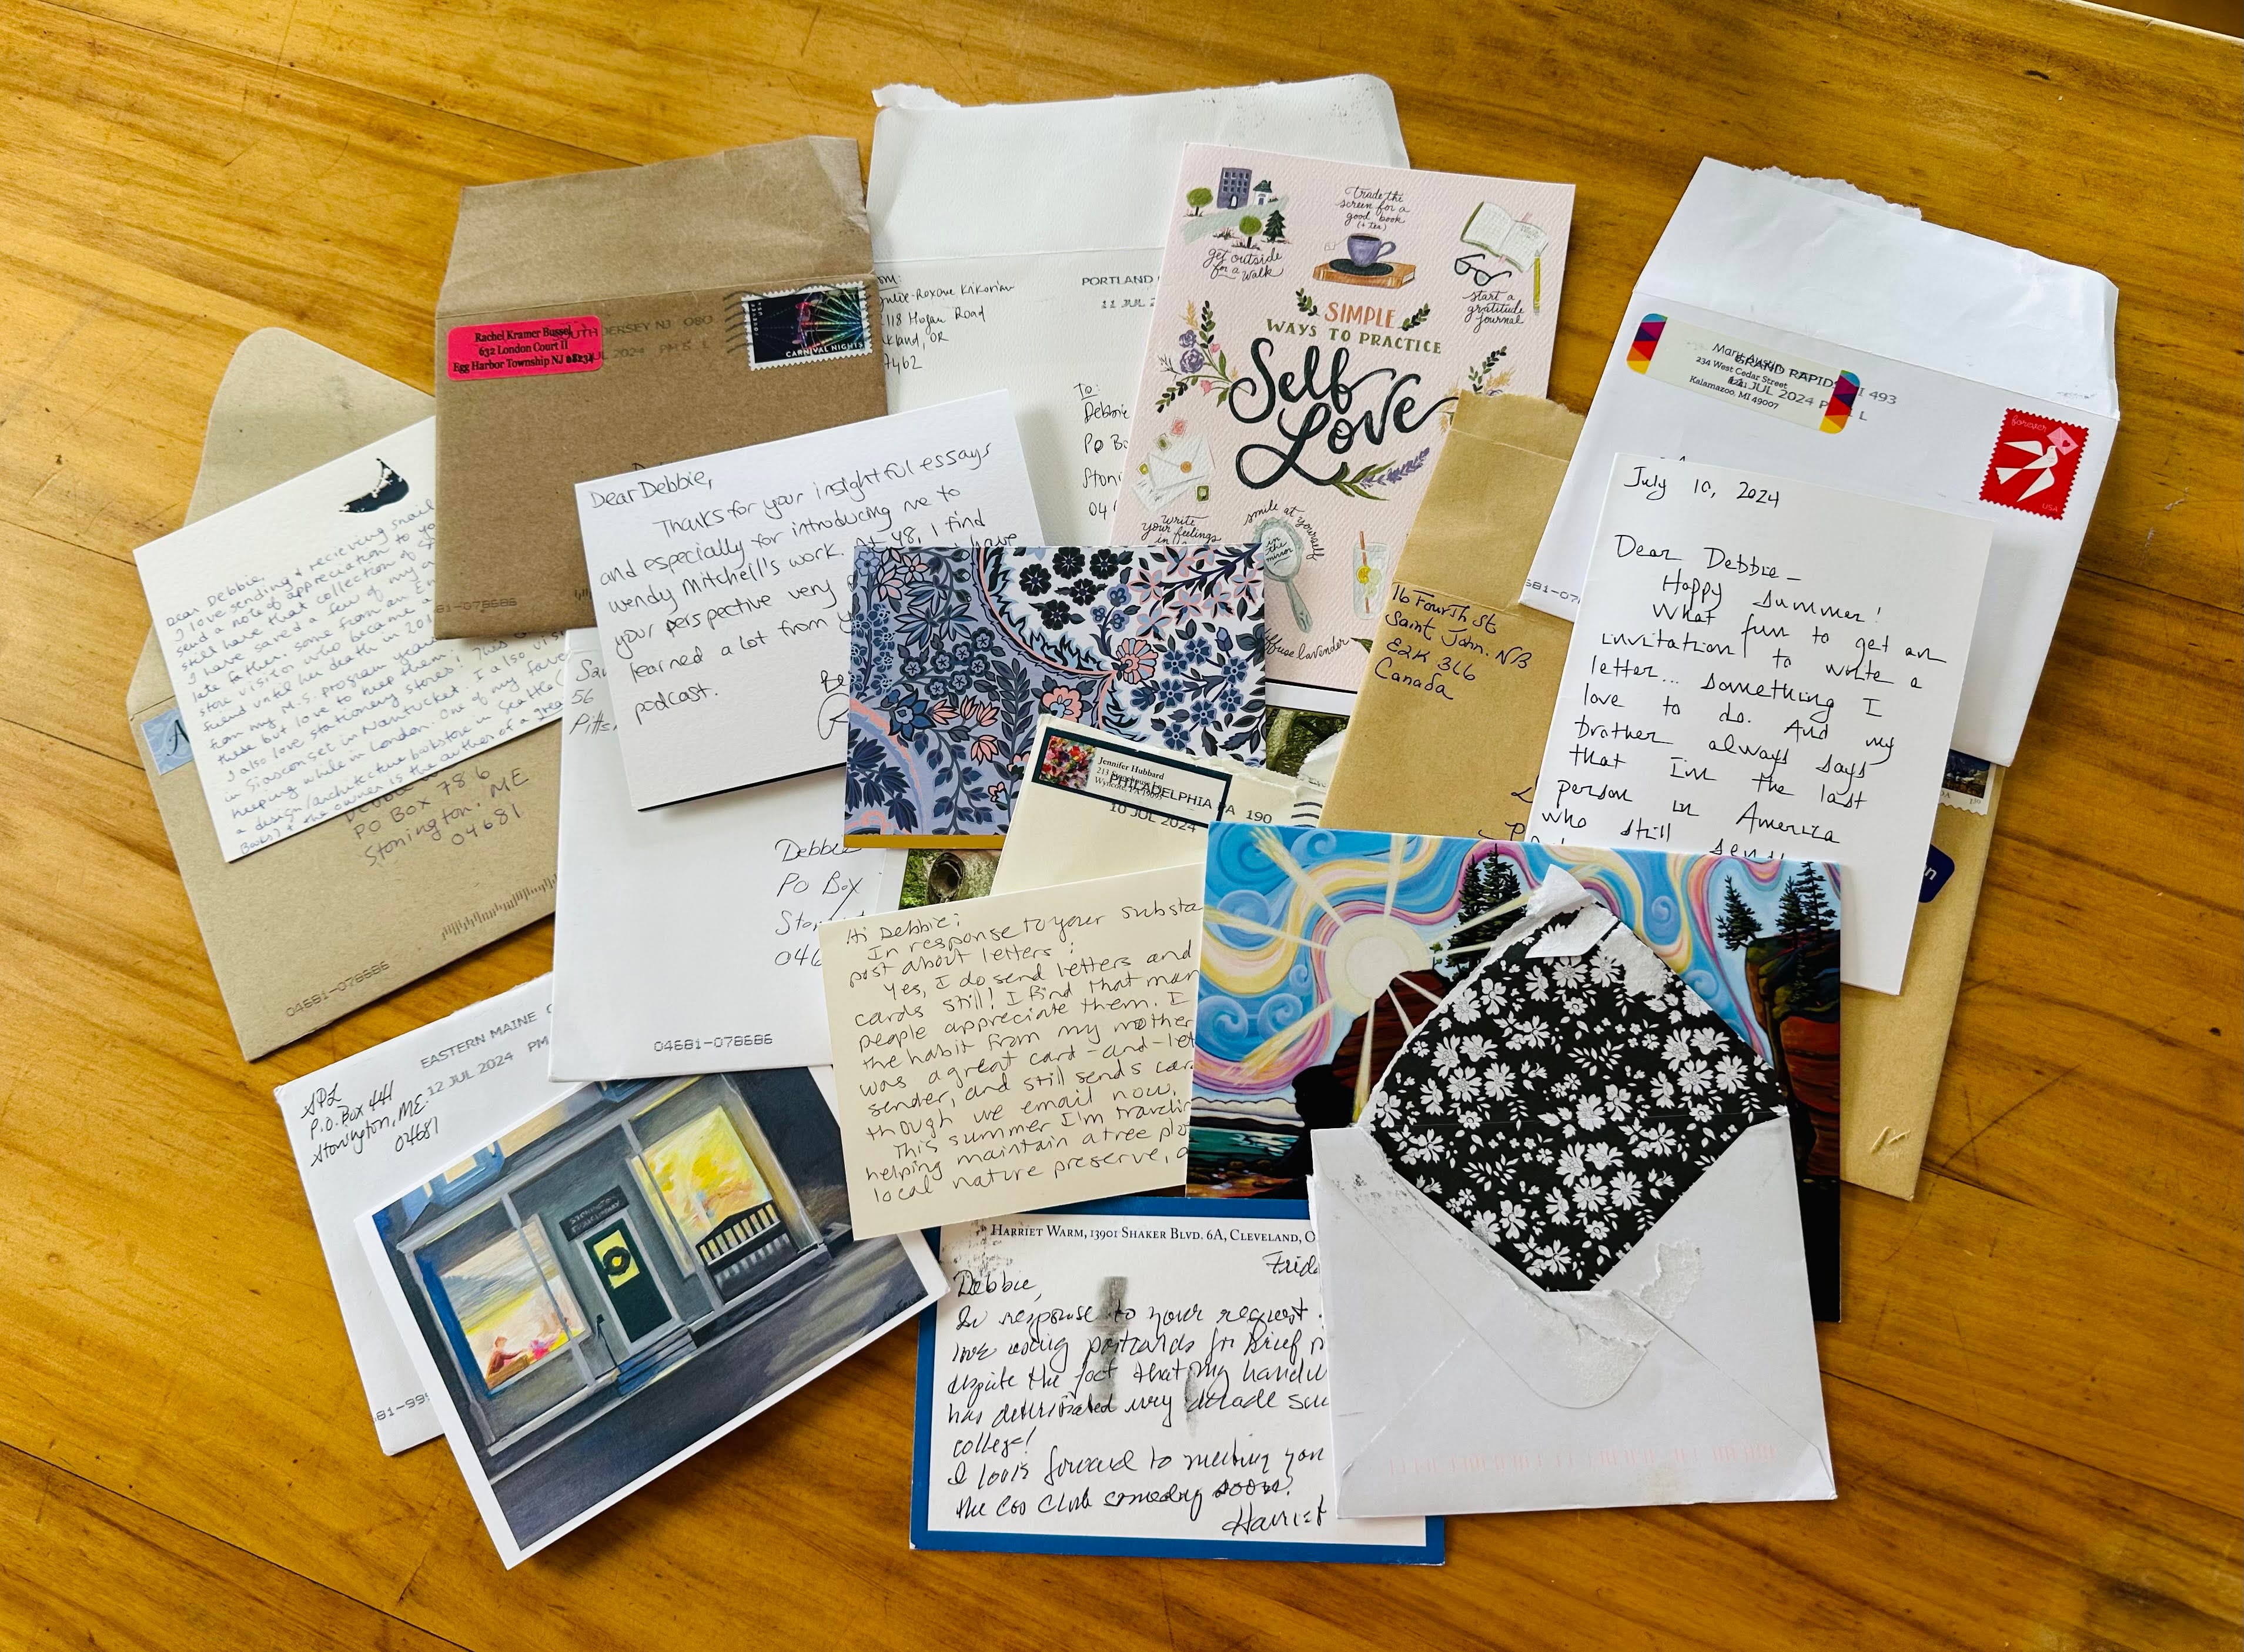 Dear Debbie,
I love sending & recieving snail
send a note of appreciation to yo
still have that collection of
I have saved a few of my
late father, some from an
store visitor who became a
friend until her death in 201
from my M.S. program years
these but love to keep them. This
I also love stationery stores! I also visi
in Siasconset in Nantucket. One of my fave
keeping while in London.
a design/architecture bookstore in Seattle (
Books) & the owner is the author of a grea
PO Box 786
Stonington, ME
04681
04681-078686
Rachel Kramer Bussel
632 London Court II
Egg Harbor Township NJ 08234
JERSEY NJ 080
JUL 2024 PM 5 L
CARNIVAL NIGHTS
81-078686
Dear Debbie,
Thanks for your insightful essays
and especially for introducing me to
Wendy Mitchell's work. At 48, I find
your perspective very
learned a lot from y
podcast.
118 Hogan Road
kland, OR
PORTLAND
11 JUL 2
To:
Debbie
PO B
Stoni
04
get outside
for a walk
trade the
screen for a
good book
(+ tea)
start a
gratitude
journal
SIMPLE
WAYS TO PRACTICE
Self
Love
write
your feelings
smile at yourself
in
the
mirror
diffuse lavender
16 Fourth St
Saint John, NB
E2K 3L6
Canada
234 West Cedar Street
Kalamazoo, MI 49007
GRAND RAPIDS MI 493
11 JUL 2024 P L
Forever
USA
July 10, 2024
Dear Debbie –
Happy Summer!
What fun to get an
invitation to write a
letter... something I
love to do. And my
brother always says
that I'm the last
person in America
who still sends
56
Pitts
Debbie
PO Box
Ston
046
04681-078686
Jennifer Hubbard
PHILADELPHIA PA 190
10 JUL 2024
Hi Debbie!
In response to your substa
post about letters:
Yes, I do send letters and
cards still! I find that man
people appreciate them. I
the habit from my mother
was a great card-and-let
sender, and still sends car
though we email now.
This summer I'm traveli
helping maintain a tree plo
local nature preserve, a
EASTERN MAINE
12 JUL 2024 PM
SPL
P.O. Box 441
Stonington, ME.
04681
81-99
HARRIET WARM, 13901 SHAKER BLVD. 6A, CLEVELAND, O
Frid
Debbie,
In response to your request
love using postcards for brief n
despite the fact that my handw
has deteriorated every decade
college!
I look forward to meeting you
the Cos Club someday soon!
Harriet